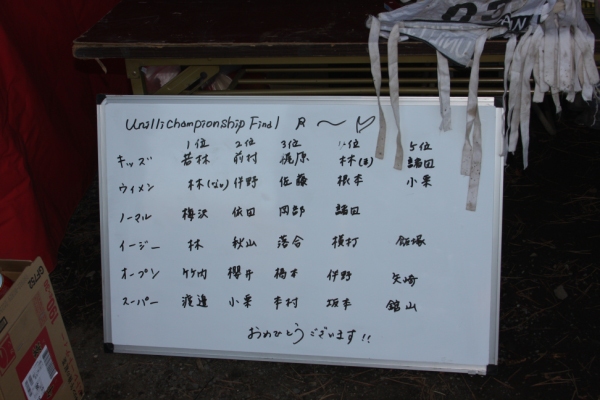 Unilli Championship Final R 〜 ♡
1位 2位 3位 4位 5位
キッズ 若林 前村 梶原 林(ほ) 諸田
ウィメン 林(なッ) 伊野 佐藤 根本 小栗
ノーマル 梅沢 依田 岡部 諸田
イージー 林 秋山 落合 横打 飯塚
オープン 竹内 櫻井 橋本 伊野 矢崎
スーパー 渡邊 小栗 本村 坂本 舘山
おめでとうございます!!